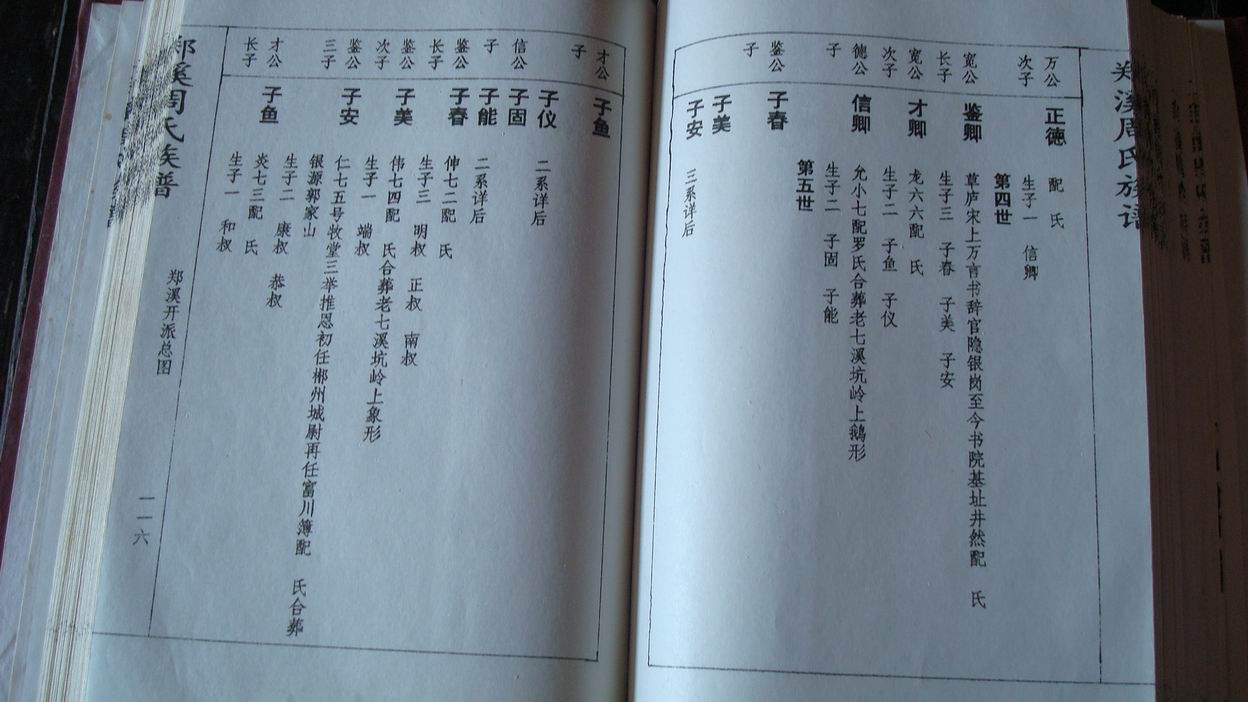 郑溪周氏族谱
万公
次子
正德
配 氏
生子一 信卿
第四世
宽公
长子
鉴卿
草庐宋上万言书辞官隐银岗至今书院基址井然配 氏
生子三 子春 子美 子安
宽公
次子
才卿
龙六六配 氏
生子二 子鱼 子仪
德公
子
信卿
允小七配罗氏合葬老七溪坑岭上鹅形
生子二 子固 子能
第五世
鉴公
子
子春
子美
子安
三系详后
才公
子
子鱼
子仪
二系详后
信公
子
子固
子能
二系详后
鉴公
长子
子春
仲七二配 氏
生子三 明叔 正叔 南叔
鉴公
次子
子美
伟七四配 氏合葬老七溪坑岭上象形
生子一 端叔
鉴公
三子
子安
仁七五号牧堂三举推恩初任郴州城尉再任富川簿配 氏合葬
银源郭家山
生子二 康叔 恭叔
才公
长子
子鱼
炎七三配 氏
生子一 和叔
郑溪周氏族谱
郑溪开派总图
一一六